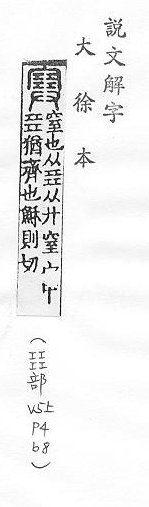 説文解字
大徐本
窒也从㠭从廾窒宀中
㠭猶齊也穌則切
(㠭部
v5上
P4
b8)